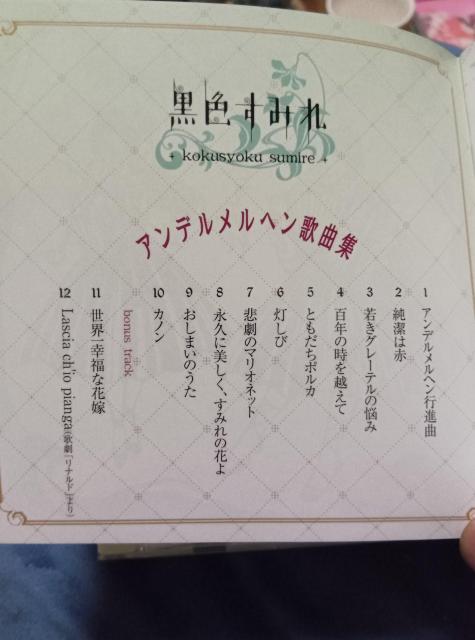 黒色すみれ
kokusyoku sumire
アンデルメルヘン歌曲集
1 アンデルメルヘン行進曲
2 純潔は赤
3 若きグレーテルの悩み
4 百年の時を越えて
5 ともだちポルカ
6 灯しび
7 悲劇のマリオネット
8 永久に美しく、すみれの花よ
9 おしまいのうた
10 カノン
bonus track
11 世界一幸福な花嫁
12 Lascia ch'io pianga(歌劇「リナルド」より)